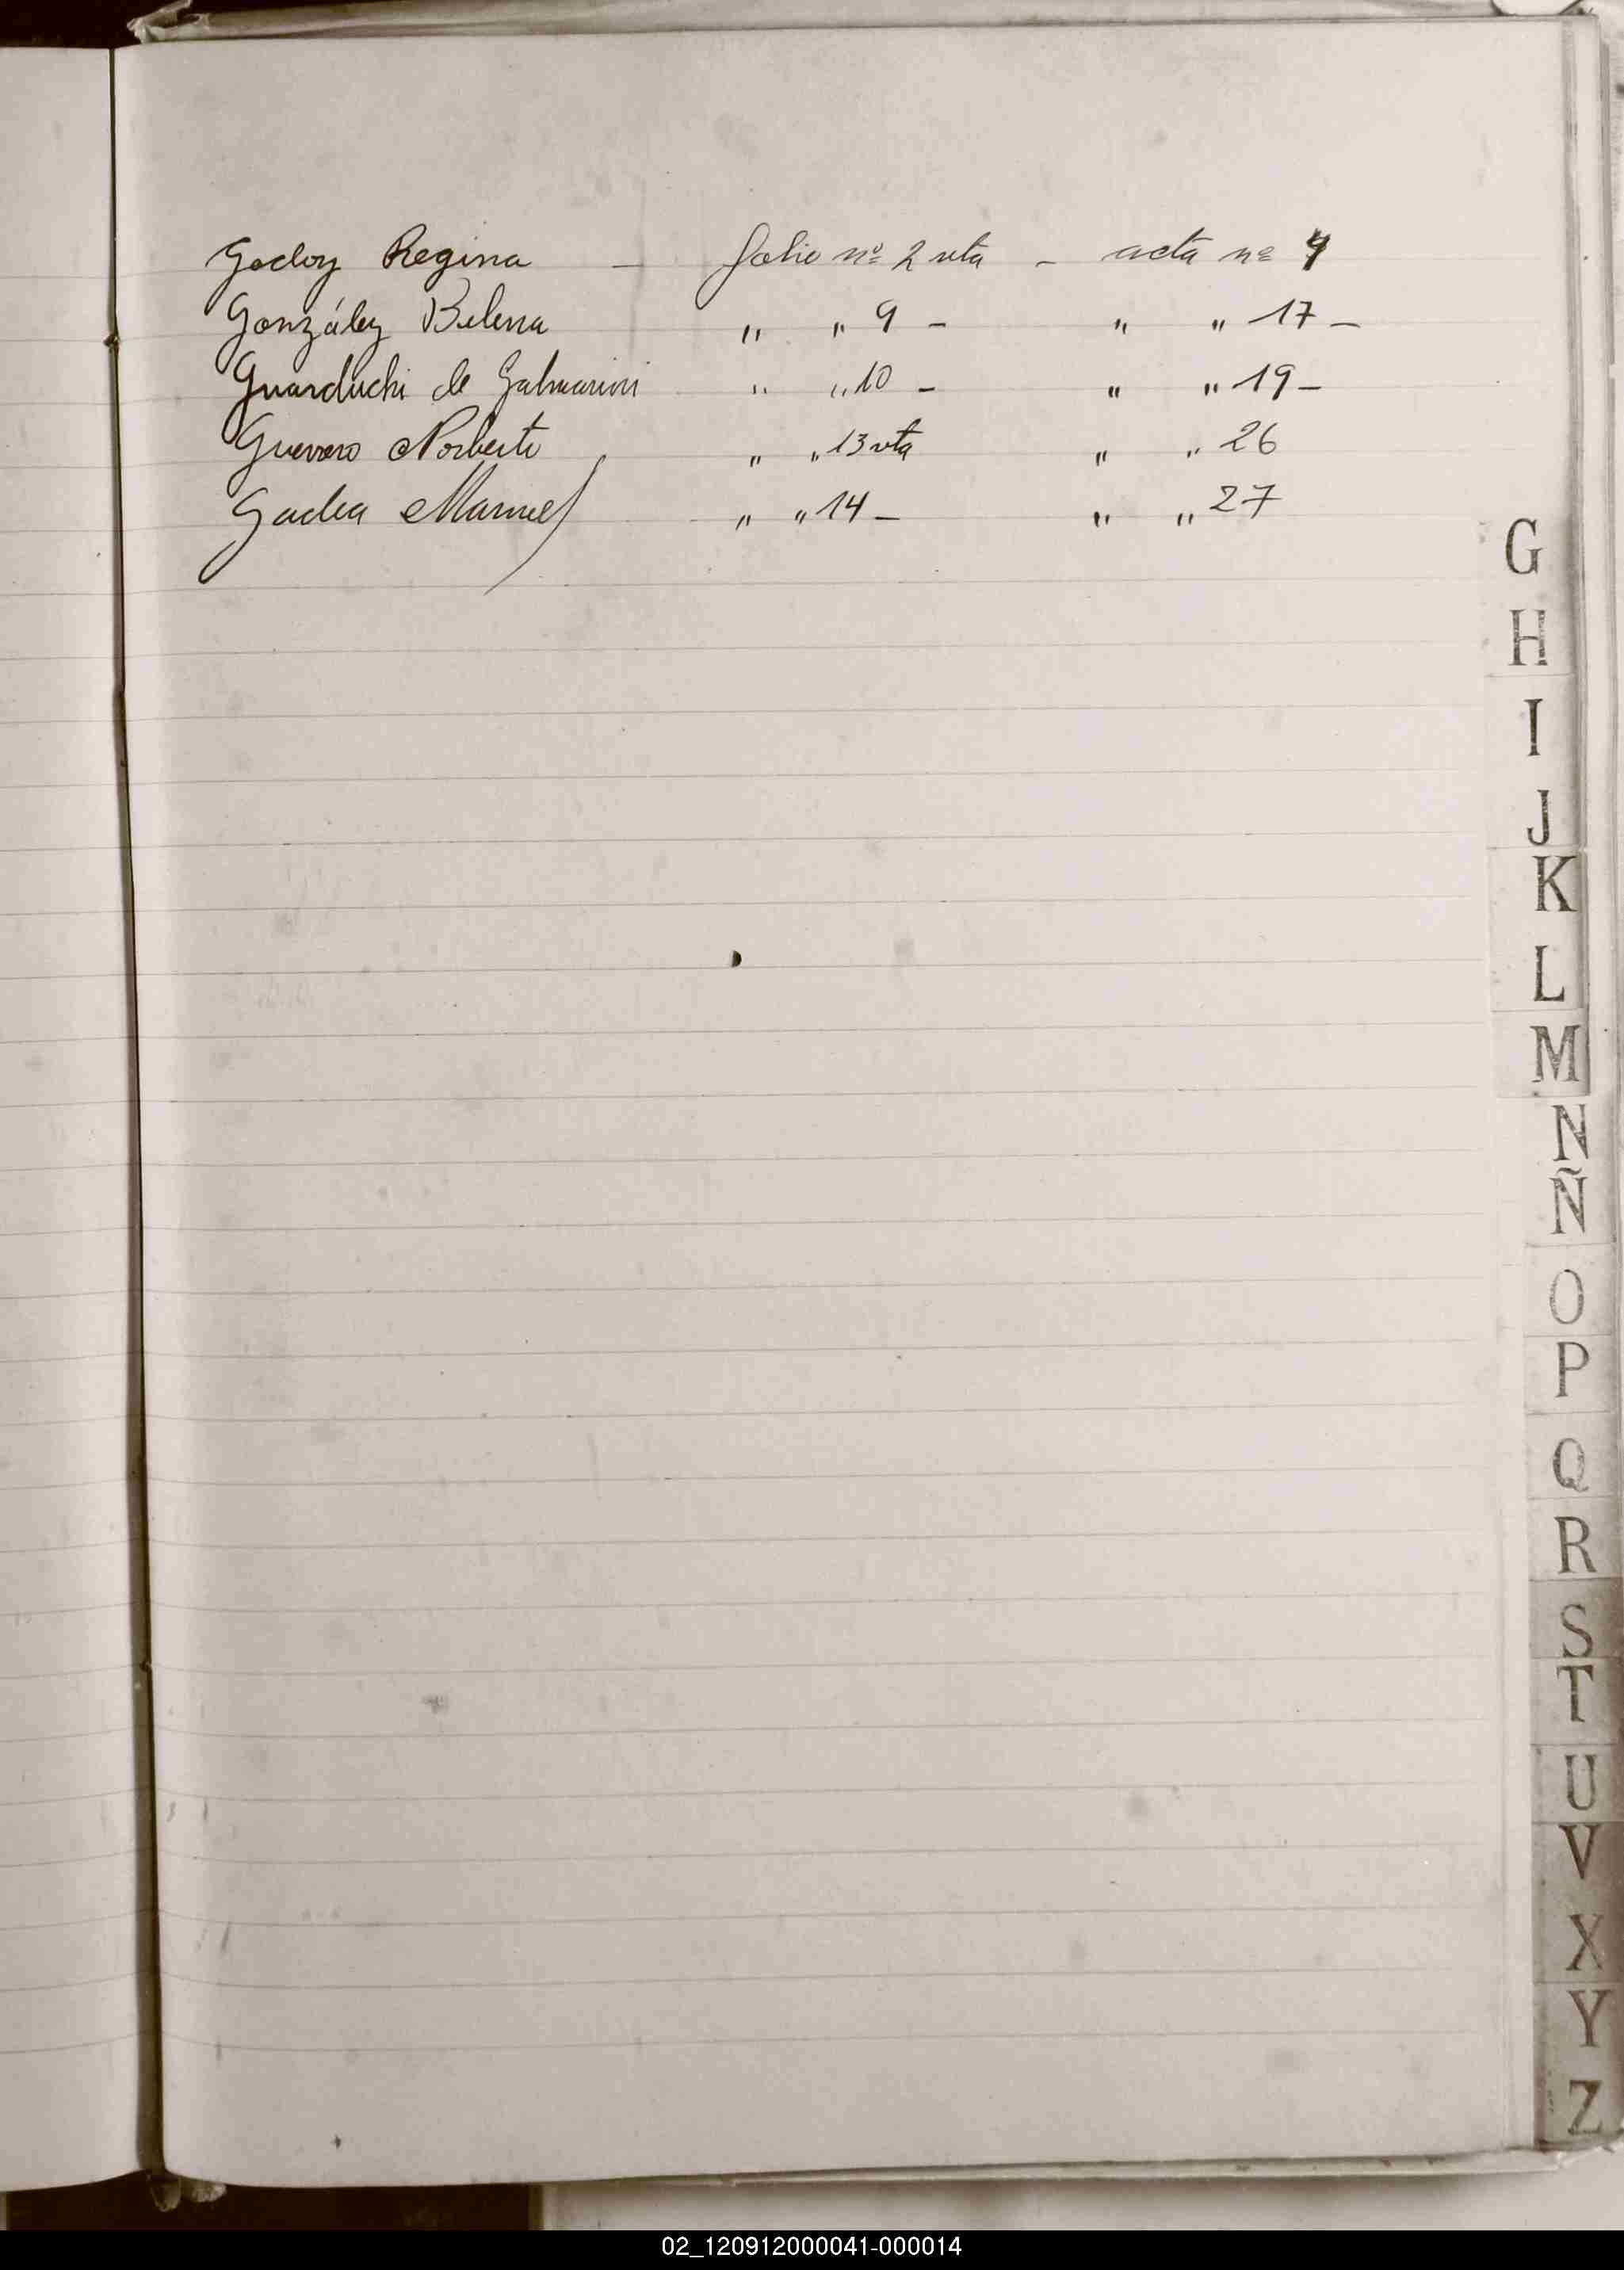 Godoy Regina — folio nº 2 vta — acta nº 4
González Belena " " 9 — " " 17 —
Guarduchi de Galmarini " " 10 — " " 19 —
Guerrero Norberto " " 13 vta " " 26
Gadea Manuel " " 14 — " " 27
G
H
I
J
K
L
M
N
Ñ
O
P
Q
R
S
T
U
V
X
Y
Z
02_120912000041-000014